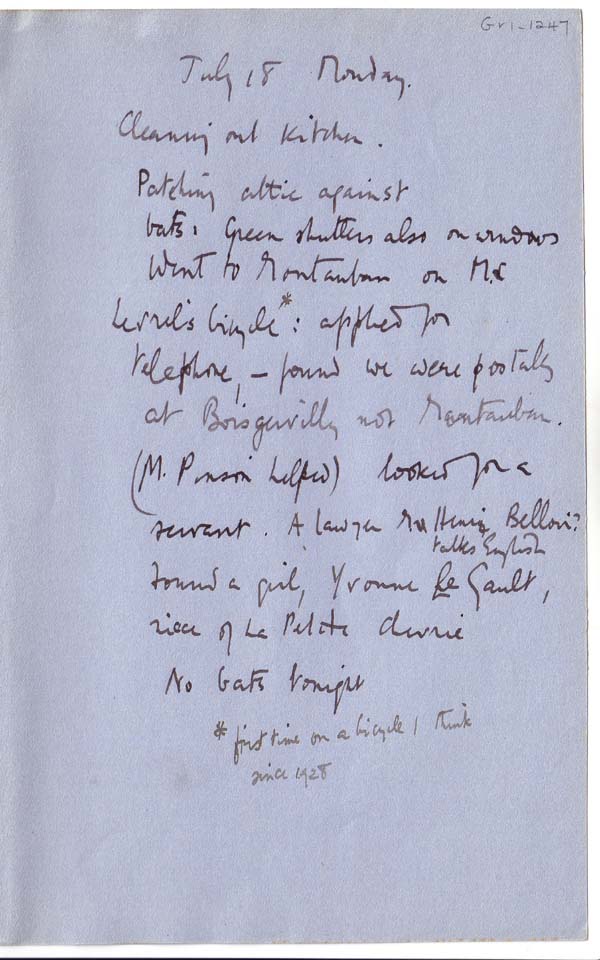 Gri-1247
July 18 Monday.
Cleaning out kitchen.
Patching attic against
bats: Green shutters also on windows
Went to Montauban on
bicycle*: applied for
telephone, – found we were postally
at Boisgervilly not Montauban.
(M. Pinson helped) looked for a
servant. A lawyer Henri
talks English
found a girl, Yvonne le Gault,
niece of La Petite
No bats tonight
* first time on a bicycle I think
since 1928